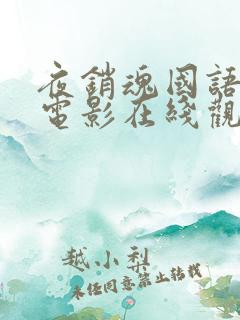 夜銷魂國語
電影在綫觀
越小梨
未经同意禁止转载